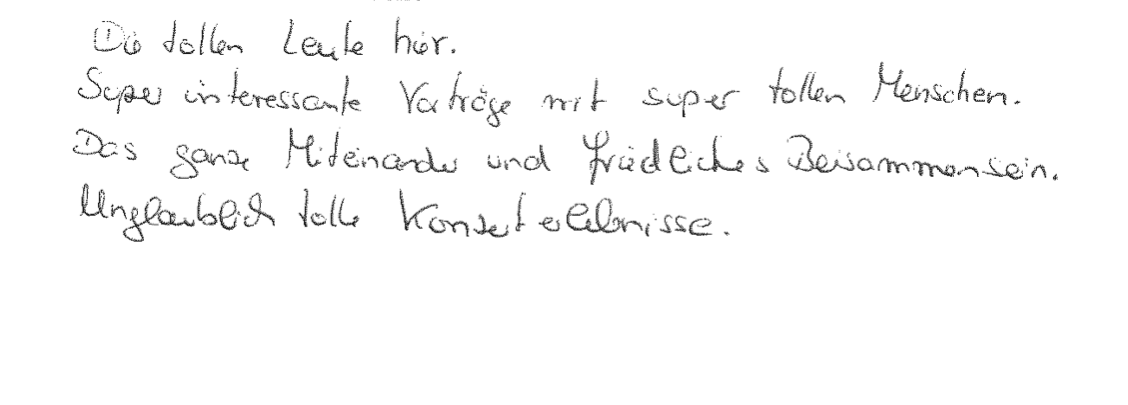 Die tollen Leute hier.
Super interessante Vorträge mit super tollen Menschen.
Das ganze Miteinander und friedliches Beisammensein.
Unglaublich tolle Konzerterlebnisse.